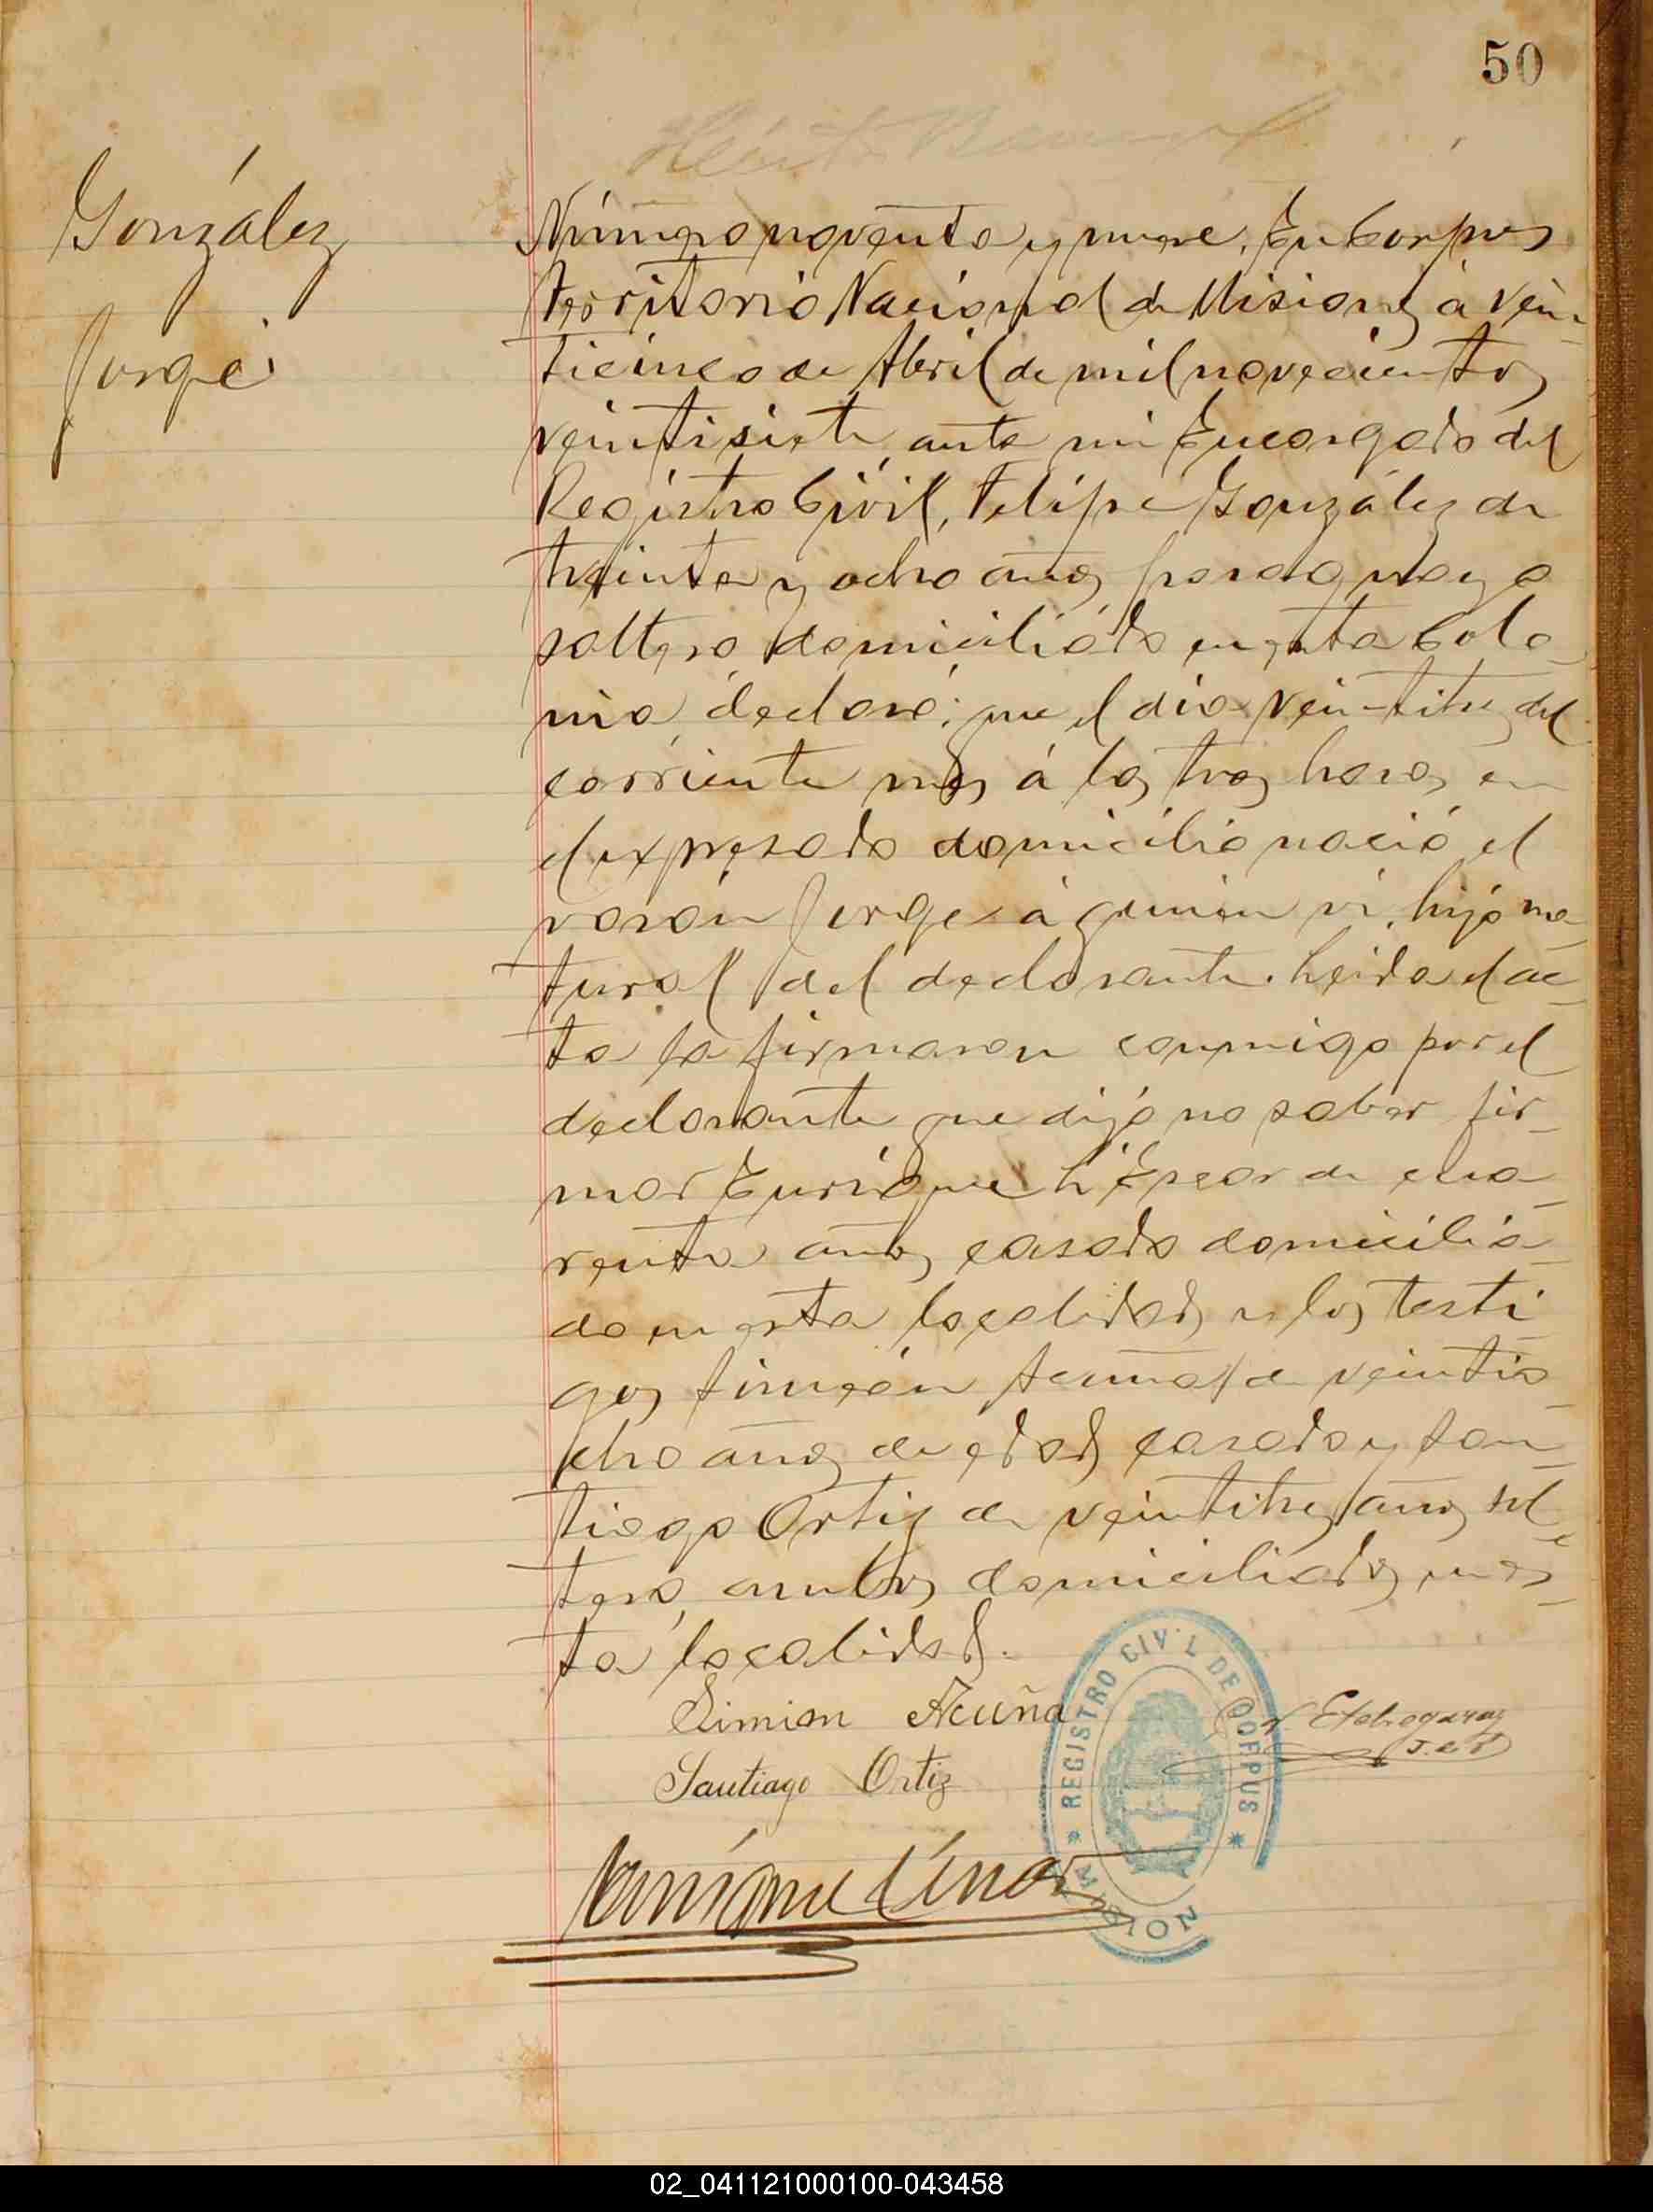 50
González
Jorge
Número noventa y nueve. En Corpus
territorio Nacional de Misiones á vein-
ticinco de Abril de mil novecientos
veintisiete, ante mi Encargado del
Registro Civil, Felipe González de
treinta y ocho años paraguayo
soltero domiciliado en esta Colo-
nia, declaró: que el dia veintitres del
corriente mes á las tres horas en
el expresado domicilio nació el
varón Jorge á quien vi, hijo na-
tural del declarante. Leida el ac-
ta la firmaron conmigo por el
declarante que dijo no saber fir-
mar Enrique de cua-
renta años casado domicilia-
do en esta localidad y los testi
gos Simeón Acuña de veintio-
cho años de edad casado y San-
tiago Ortiz de veintitres años sol-
tero, ambos domiciliados en es-
ta localidad.
Simion Acuña
Santiago Ortiz
Etchegaray
J. de P.
Enrique
REGISTRO CIVIL DE CORPUS
MISION
02_041121000100-043458